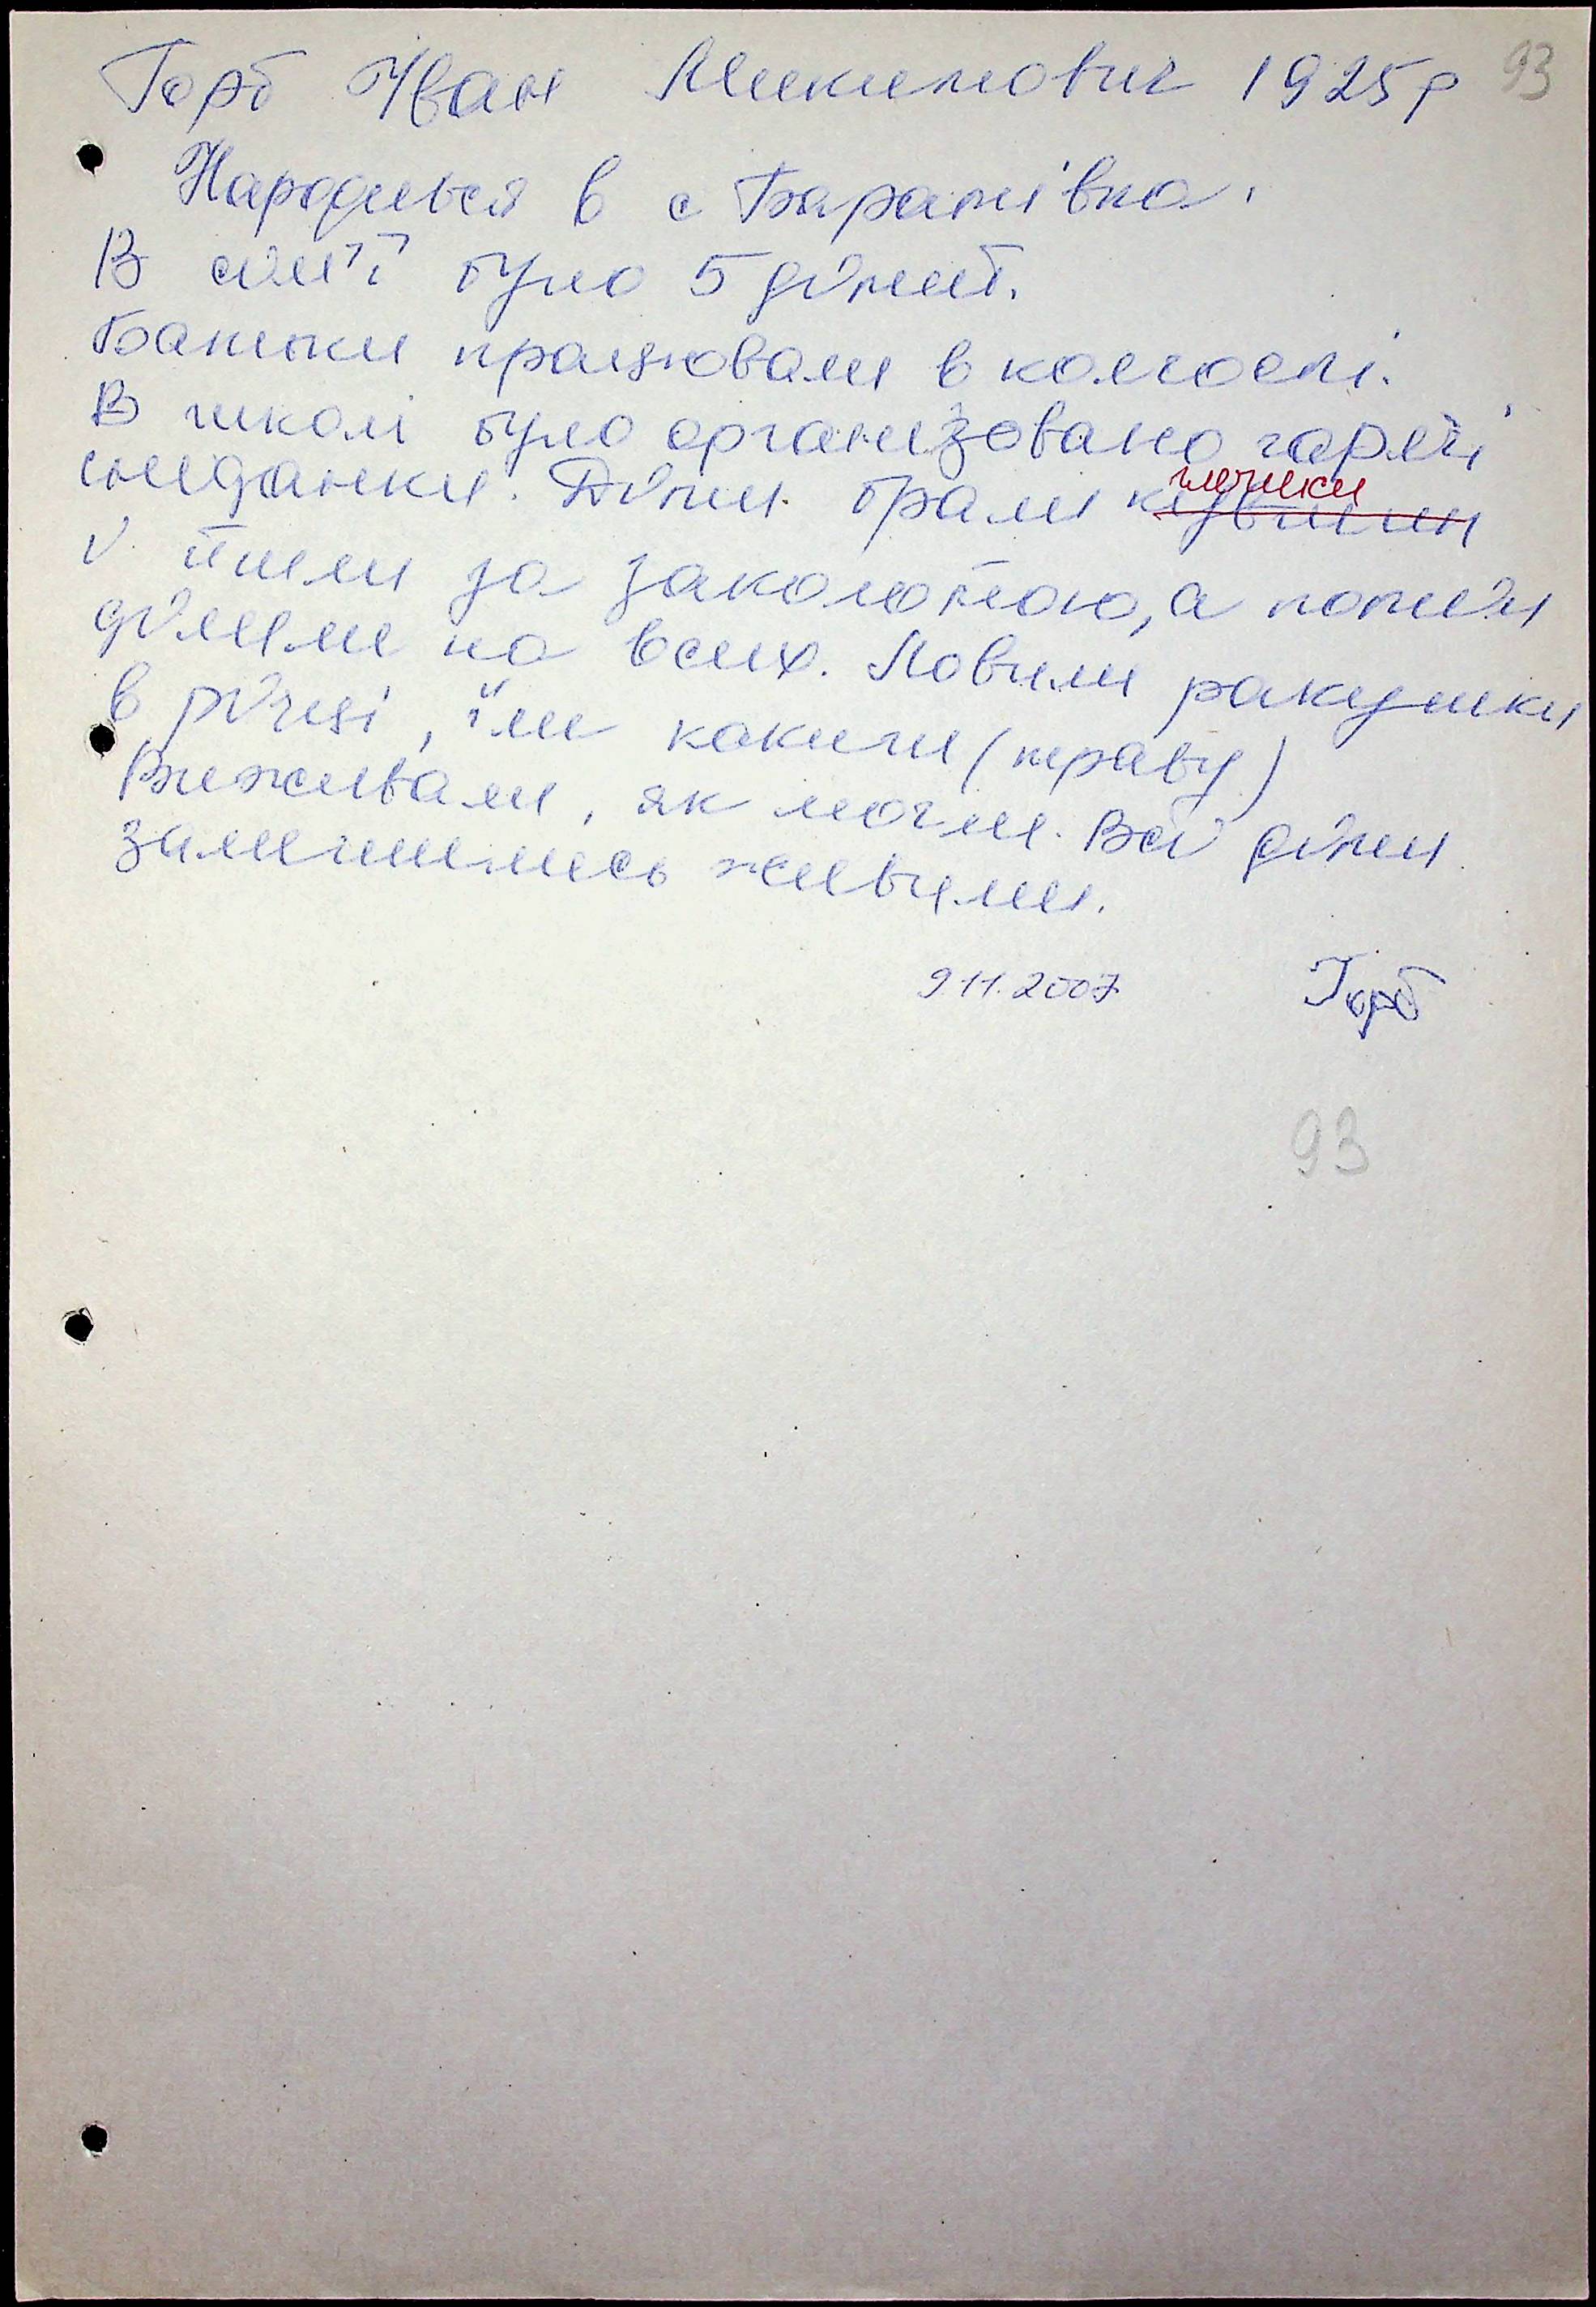 Горб Іван Микитович 1925р 93
Народився в с Баранівка.
В сім'ї було 5 дітей.
Батьки працювали в колгоспі.
В школі було організовано гарячі
сніданки. Діти брали кувшин глечики
і йшли за заколотою, а потім
ділили на всих. Ловили ракушки
в річці, їли какиши (траву)
Виживали, як могли. Всі діти
залишились живими.
9.11.2007 Горб
93